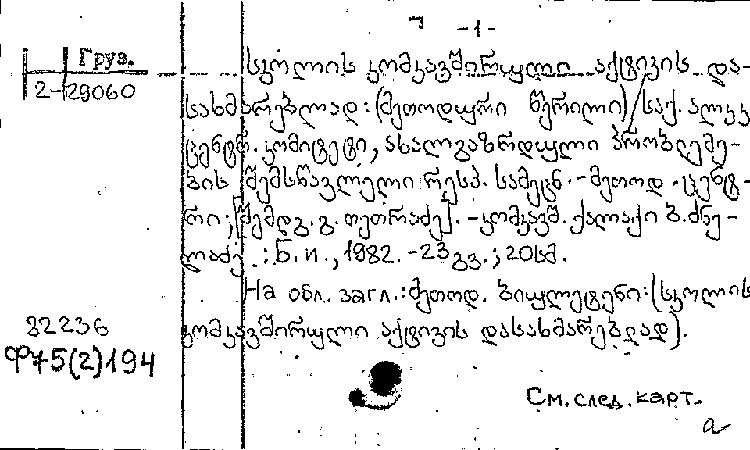 -1-
Груз.
2-29060
სკოლის კომკავშირული აქტივის და-
სახმარებლად: (მეთოდური წერილი) / საქ. ალკკ
ცენტრ. კომიტეტი, ახალგაზრდული პრობლემე-
ბის შემსწავლელი რესპ. სამეცნ.-მეთოდ. ცენტ-
რი; [შემდგ. გ. თეთრაძე]. - კომკავშ. ქალაქი
: Б.и., 1982. - 23 გვ.; 20 სმ.
На обл. загл.: მეთოდ. ბიულეტენი: (სკოლის
კომკავშირული აქტივის დასახმარებლად).
32236
Ф75(2)194
См. след. карт.